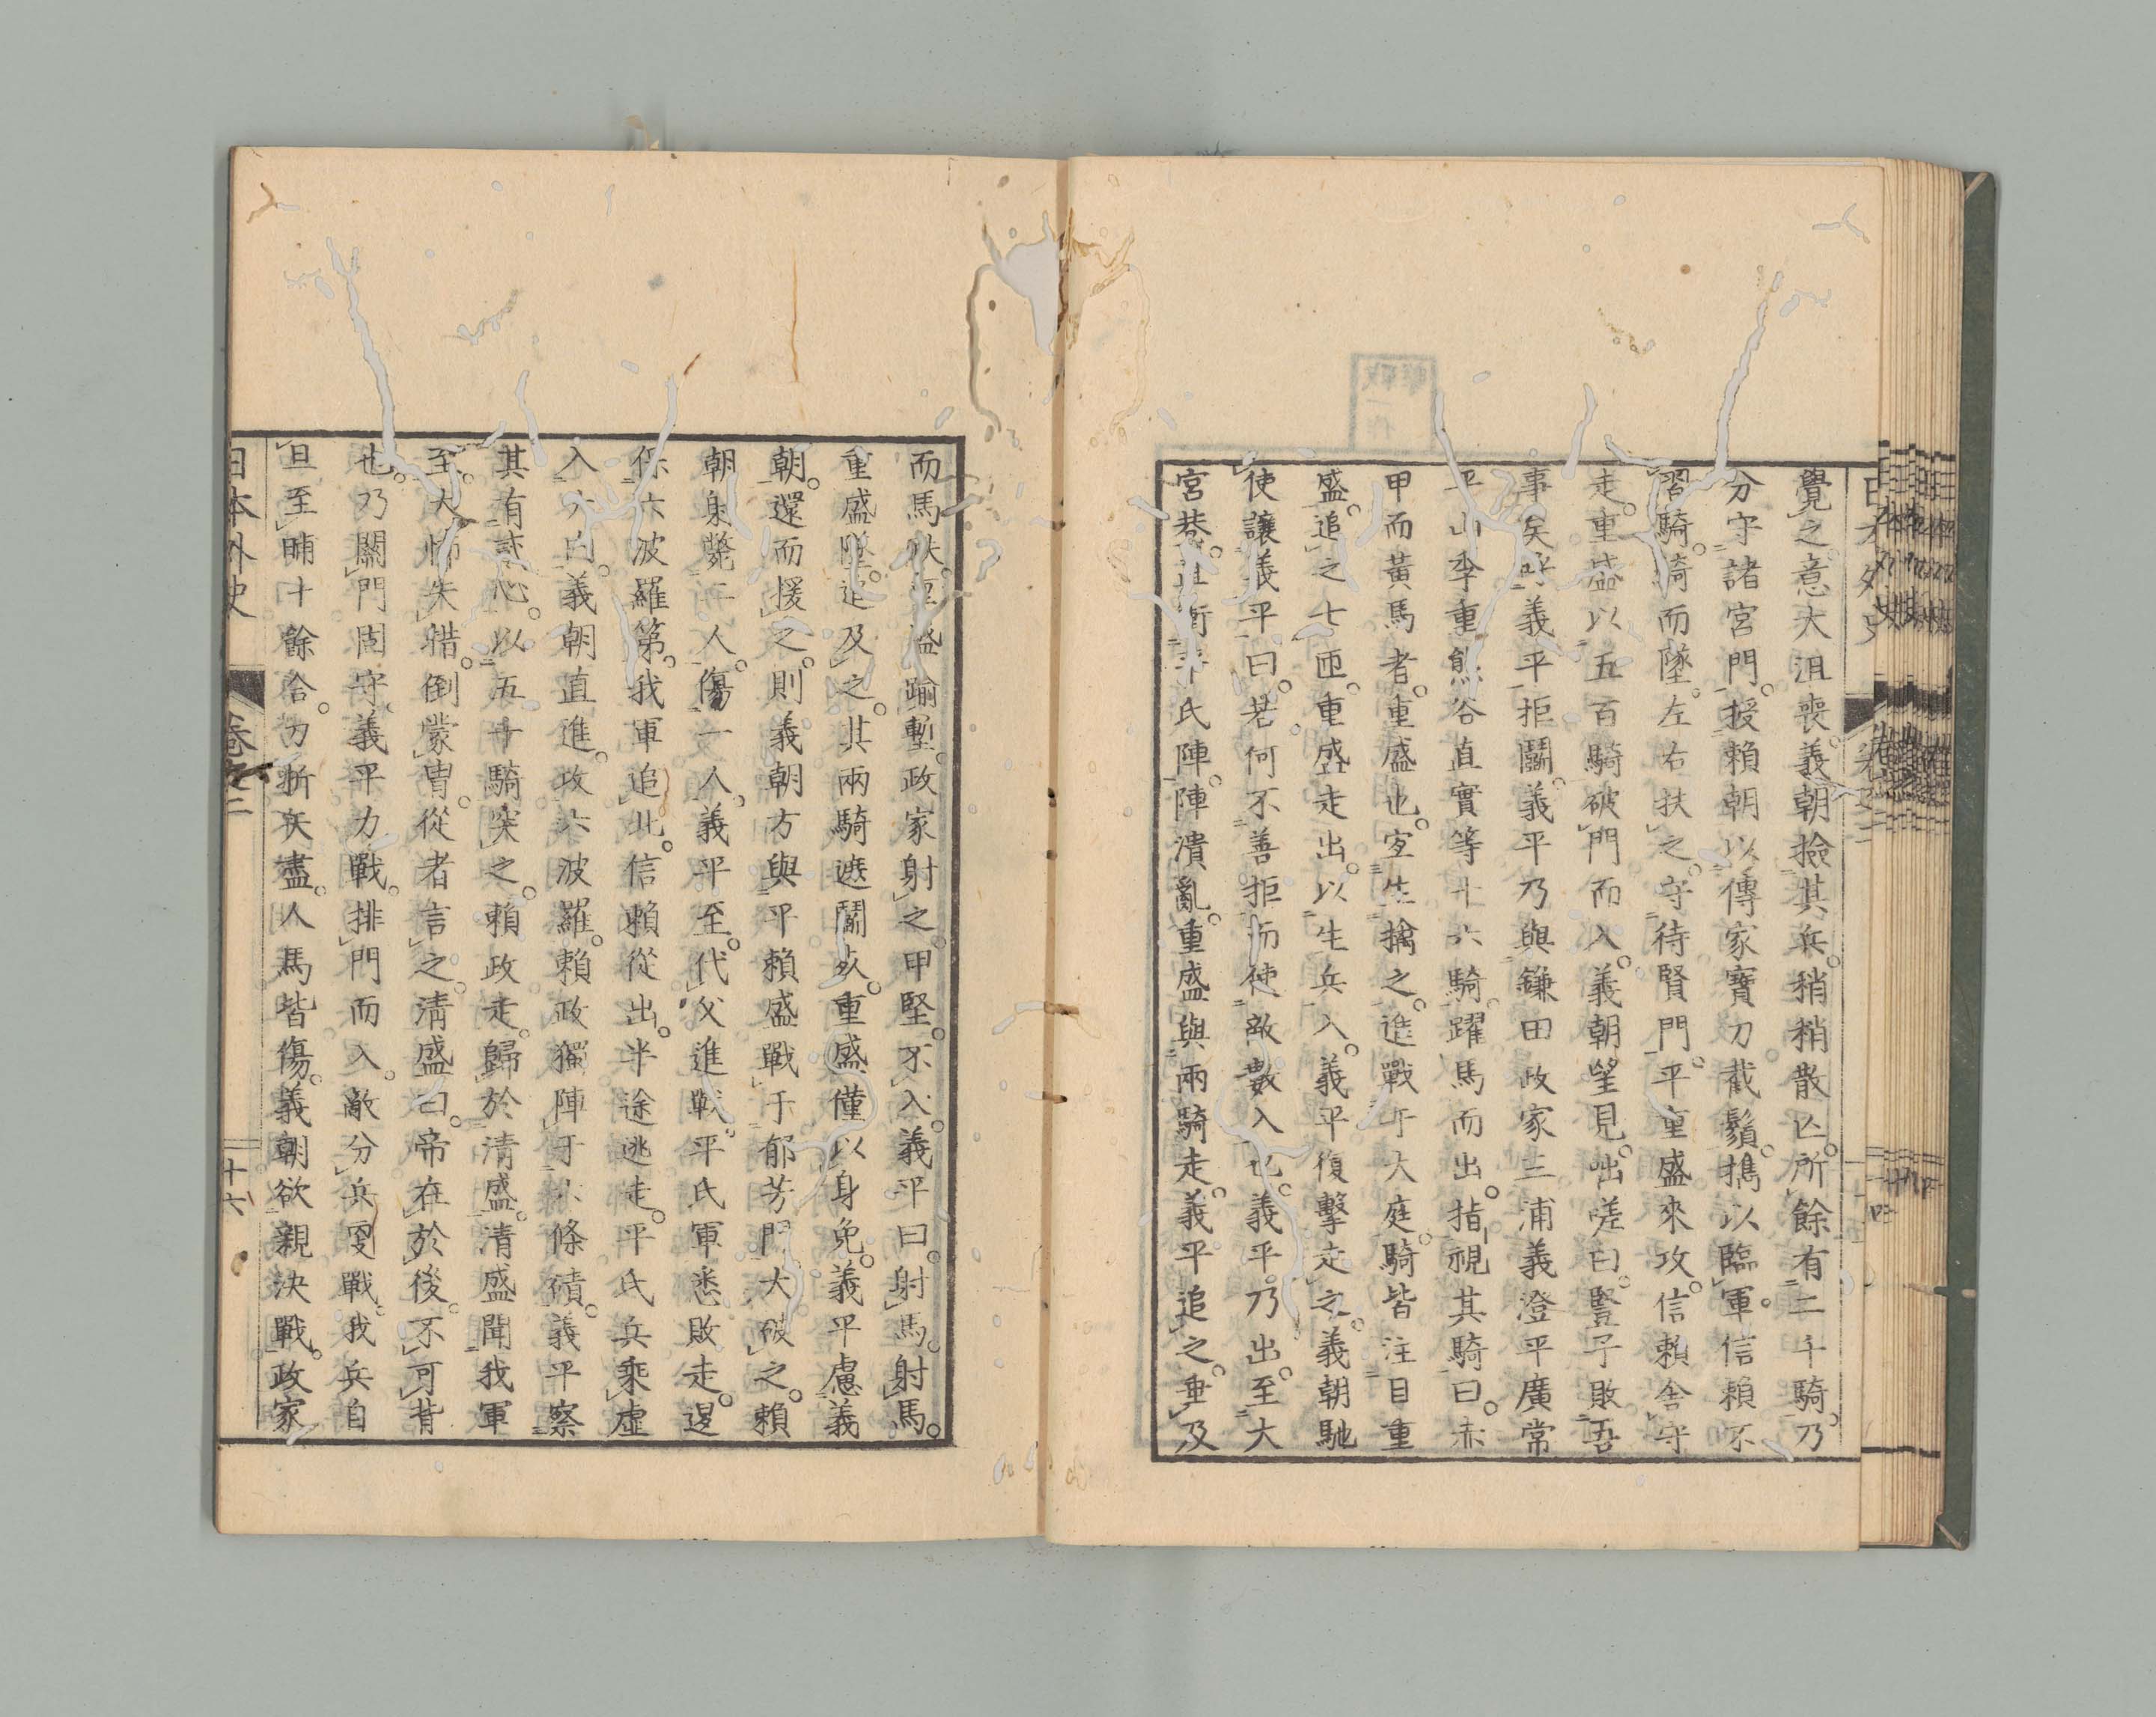 覺之意大沮喪。義朝撿其兵。稍稍散亾。所餘有二千騎。乃
分守諸宮門。授賴朝以傳家寶刀截鬚。擕以臨軍。信賴不
習騎。騎而墜。左右扶之。守待賢門。平重盛來攻。信賴舍守
走。重盛以五百騎破門而入。義朝望見。咄嗟曰。豎子敗吾
事矣。呼義平拒鬭。義平乃與鎌田政家三浦義澄平廣常
平山季重熊谷直實等十六騎。躍馬而出。指視其騎曰。赤
甲而黃馬者。重盛也。宜生擒之。進戰于大庭。騎皆注目重
盛。追之七匝。重盛走出。以生兵入。義平復擊走之。義朝馳
使讓義平曰。若何不善拒而使敵數入也。義平乃出。至大
宮巷。衝平氏陣。陣潰亂。重盛與兩騎走。義平追之。垂及
而馬 重盛踰塹。政家射之。甲堅。不入。義平曰。射馬。射馬。
重盛墜。追及之。其兩騎遮鬭死。重盛僅以身免。義平慮義
朝。還而援之。則義朝方與平賴盛戰于郁芳門。大破之。賴
朝射斃二人。傷一人。義平至。代父進戰。平氏軍悉敗走。還
保六波羅第。我軍追北。信賴從出。半途逃走。平氏兵乘虛
入大內。義朝直進。攻六波羅。賴政獨陣于六條磧。義平察
其有 心。以五十騎突之。賴政走。歸於清盛。清盛聞我軍
至。大怖失措。倒蒙冑。從者言之。清盛曰。帝在於後。不可背
也。乃闔門固守。義平力戰。排門而入。敵分兵更戰。我兵自
旦至晡十餘合。刀折矢盡。人馬皆傷。義朝欲親決戰。政家
日本外史 卷之二 十六